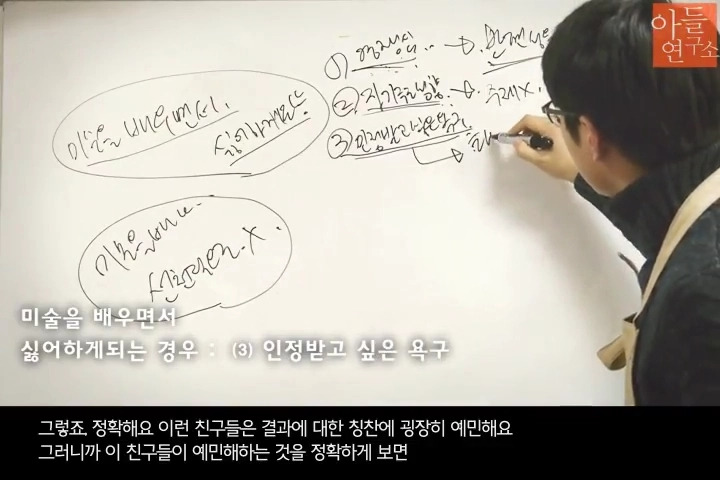 아들
연구소
① 경쟁심
② 자기주도성향 → 주제X.
③ 인정받고싶은욕구
미술을 배우면서
싫어하게되는
미술을 배우
선천적으로 X.
미술을 배우면서
싫어하게되는 경우 : (3) 인정받고 싶은 욕구
그렇죠, 정확해요 이런 친구들은 결과에 대한 칭찬에 굉장히 예민해요
그러니까 이 친구들이 예민해하는 것을 정확하게 보면